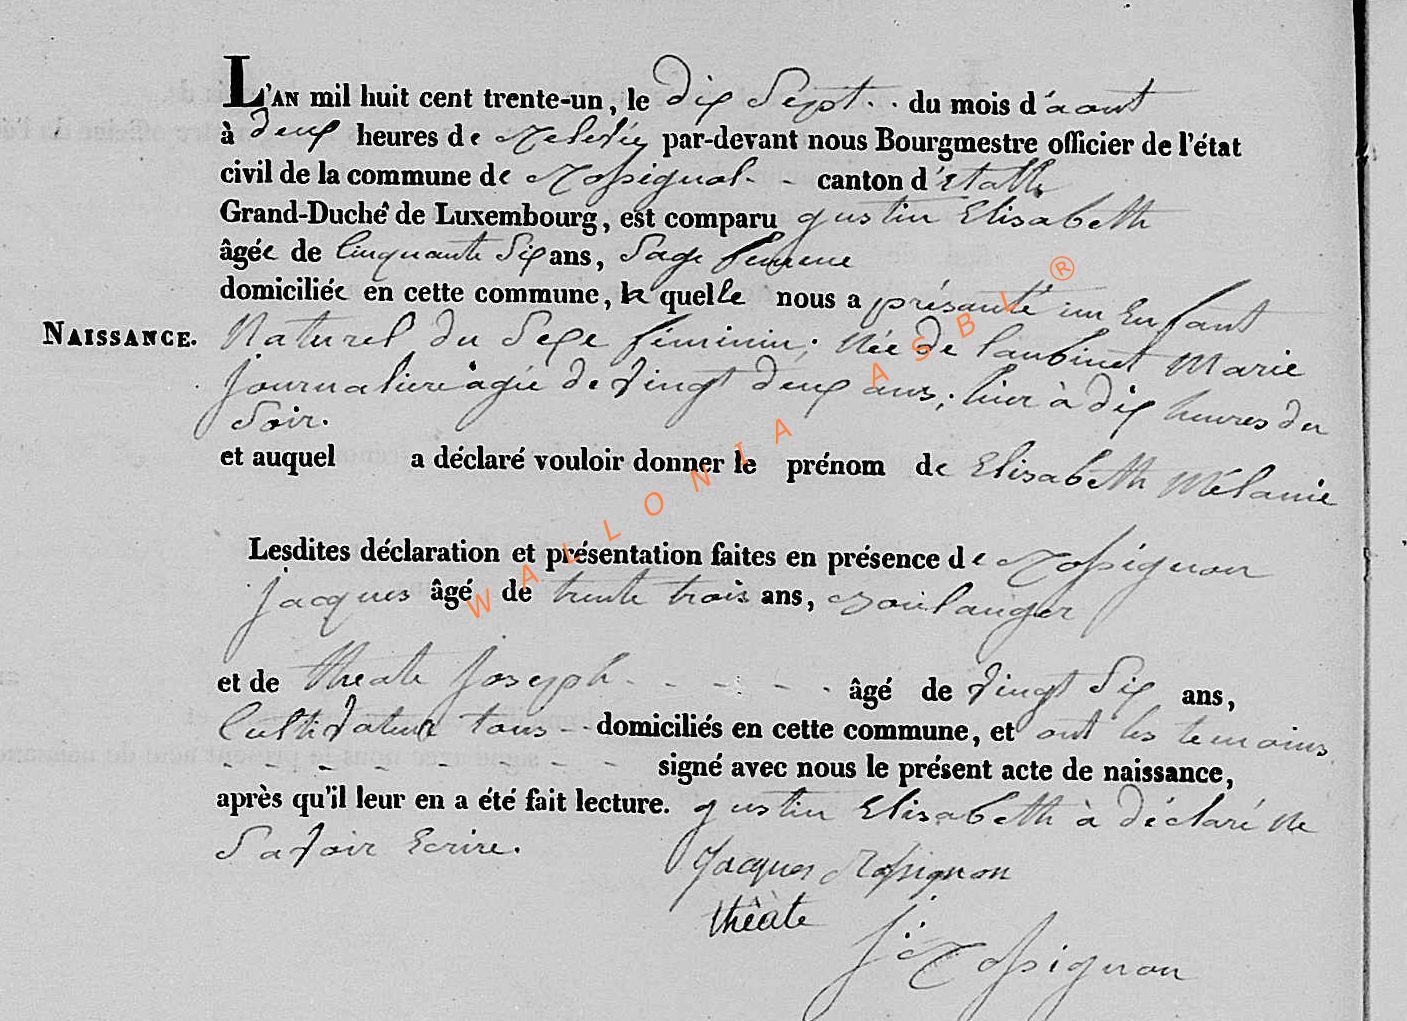 L'AN mil huit cent trente-un, le dix Sept . . du mois d'aout
à deux heures de Relevée par-devant nous Bourgmestre officier de l'état
civil de la commune de Rossignol - - canton d'Etalle
Grand-Duché de Luxembourg, est comparu gustin Elisabeth
âgée de Cinquante Six ans, Sage femme
domiciliée en cette commune, la quelle nous a présanté un Enfant
NAISSANCE. Naturel du Sexe féminin; Née de Marie
Journalière agée de vingt deux ans; hier à dix heures du
Soir.
et auquel a déclaré vouloir donner le prénom de Elisabeth Mélanie
Lesdites déclaration et présentation faites en présence de Rossignon
Jacques âgé de trente trois ans, Boulanger
et de théate Joseph - - - - - - âgé de vingt Six ans,
Cultivateur tous - - domiciliés en cette commune, et ont les temoins
- - - - - - - - - signé avec nous le présent acte de naissance,
après qu'il leur en a été fait lecture. gustin Elisabeth à déclaré Ne
Savoir Ecrire.
Jacques Rossignon
thèate
J: Rossignon
WALLONIA ASBL ®